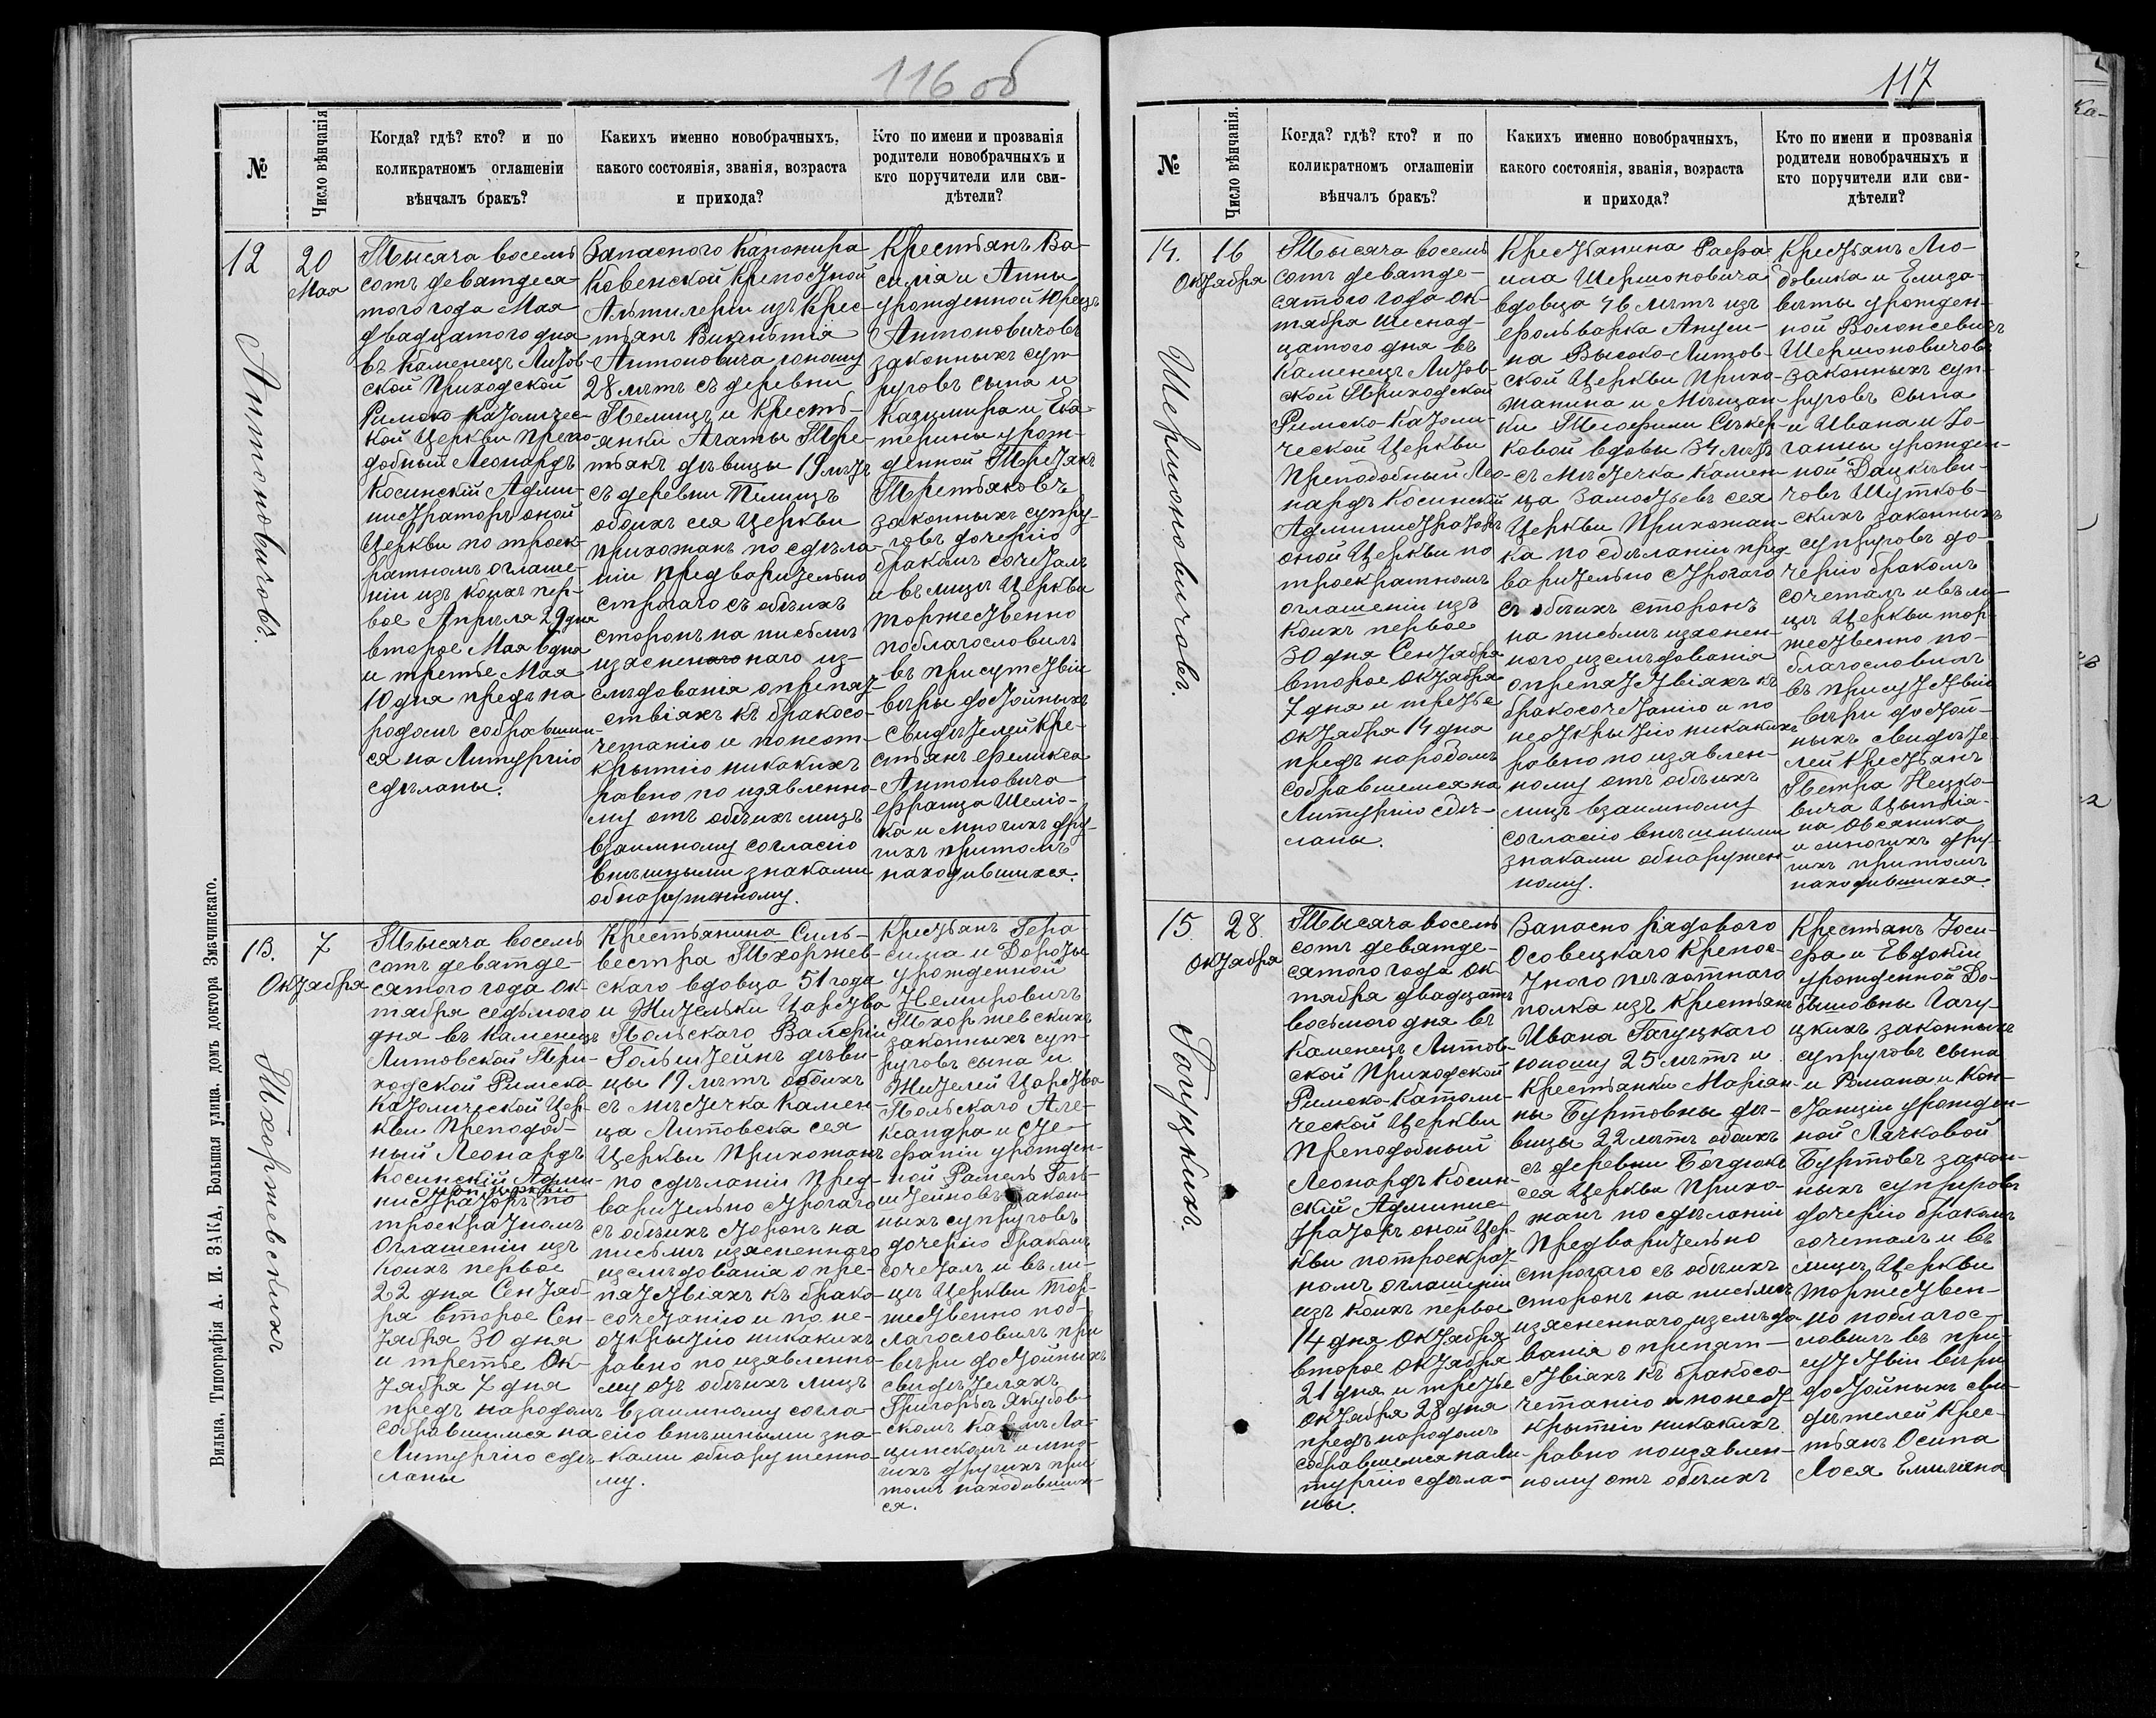 116 об
№
Число вѣнчанія
Когда? гдѣ? кто? и по
коликратномъ оглашеніи
вѣнчалъ бракъ?
Какихъ именно новобрачныхъ,
какого состоянія, званія, возраста
и прихода?
Кто по имени и прозванія
родители новобрачныхъ и
кто поручители или сви-
дѣтели?
12
20
Мая
Антоновичовъ.
Тысяча восемь
сотъ девятдеся-
того года Мая
двадцатого дня
въ Каменецъ Литов-
ской Приходской
Римско-католичес-
кой Церкви препо-
добный Леонардъ
Косинскій Адми-
нистраторъ оной
Церкви по троек-
ратномъ оглаше-
ніи изъ коихъ пер-
вое Апрѣля 29 дня
второе Мая 6 дня
и третье Мая
10 дня предъ на
родомъ собравшим-
ся на Литургію
сдѣланы.
Запасного Канонира
Ковенской Крепостной
Артилеріи изъ крес-
тьянъ Викентія
Антоновича юношу
28 лѣтъ съ деревни
Пелищъ и Кресть-
янки Агаты Тре-
тьякъ дѣвицы 19 лѣтъ
съ деревни Пелищъ
обоихъ сея Церкви
прихожанъ по сдѣла-
ніи предварительно
строгаго съ обѣихъ
сторонъ на письмѣ
изясненнаго из-
слѣдованія о препят-
ствіяхъ къ бракосо-
четанію и понеот-
крытію никакихъ
равно по изявленно-
му отъ обѣихъ лицъ
взаимному согласію
внѣшными знаками
обнаруженному.
Крестьянъ Ва-
силія и Анны
урожденной Юрецъ
Антоновичовъ
законныхъ суп
руговъ сына и
Казимира и Ека-
терины урож-
денной Третякъ
Третьяковъ
законныхъ супру-
говъ дочерію
бракомъ сочеталъ
и въ лицѣ Церкви
торжественно
поблагословилъ
въ присутствіи
вѣры достойныхъ
свидѣтелей Кре-
стьянъ Феликса
Антоновича
Франца Шеліо-
ка и многихъ дру-
гихъ притомъ
находившихся.
13.
7
Октября
Тхоржевскихъ
Тысяча восемь
сотъ девятде-
сятого года ок-
тября седьмого
дня въ Каменецъ
Литовской При-
ходской Римско
Католической Цер-
кви Преподоб-
ный Леонардъ
Косинскій Адми-
оной церкви
нистраторъ по
троекратномъ
оглашеніи изъ
коихъ первое
22 дня Сентяб-
ря второе Сен-
тября 30 дня
и третье Ок-
тября 7 дня
предъ народомъ
собравшимся на
Литургію сдѣ-
ланы
Крестьянина Силь-
вестра Тхоржев-
скаго вдовца 51 года
и Жительки Царства
Польскаго Валеріи
Гольштейнъ дѣви-
цы 19 лѣтъ обоихъ
съ мѣстечка Камен-
ца Литовска сея
Церкви Прихожанъ
по сдѣланіи Пред-
варительно строгаго
съ обѣихъ сторонъ на
письмѣ изясненнаго
изслѣдованія о пре-
пятствіяхъ къ брако-
сочетанію и по не-
открытію никакихъ
равно по изявленно-
му отъ обѣихъ лицъ
взаимному согла-
сію внѣшными зна-
ками обнаруженно-
му.
Крестьянъ Гера
сима и Дороты
урожденной
Немировичъ
Тхоржевскихъ
законныхъ суп-
руговъ сына и
Жителей Царства
Польскаго Але-
ксандра и Сте-
фаніи урожден-
ной Рамель Голь-
штейновъ закон-
ныхъ супруговъ
дочерію бракомъ
сочеталъ и въ ли-
цѣ Церкви тор-
жественно поб-
лагословилъ при
вѣры достойныхъ
свидѣтеляхъ
Григорѣ Якубов-
скомъ Ла-
цинскомъ и мно-
гихъ другихъ при
томъ находивших-
ся.
Вильна, Типографія А. И. ЗАКА, Большая улица, домъ доктора Змачинскаго.
117
№
Число вѣнчанія.
Когда? гдѣ? кто? и по
коликратномъ оглашеніи
вѣнчалъ бракъ?
Какихъ именно новобрачныхъ,
какого состоянія, званія, возраста
и прихода?
Кто по имени и прозванія
родители новобрачныхъ и
кто поручители или сви-
дѣтели?
14.
16
Октября
Шершоновичовъ.
Тысяча восемь
сотъ девятде-
сятого года ок-
тября шеснад-
цатого дня въ
Каменецъ Литов-
ской Приходской
Римско-Католи-
ческой Церкви
Преподобный Лео-
нардъ Косинскій
Администраторъ
оной Церкви по
троекратномъ
оглашеніи изъ
коихъ первое
30 дня Сентября
второе Октября
7 дня и третье
Октября 14 дня
предъ народомъ
собравшемся на
Литургію сдѣ-
ланы.
Крестьянина Рафа-
ила Шершоновича
вдовца 46 лѣтъ изъ
фольварка Ануси-
на Высоко-Литов-
ской Церкви прихо-
жанина и Мѣщан-
ки Теофили Сикер-
ковой вдовы 34 лѣтъ
съ мѣстечка Камен-
ца Замостьевъ сея
Церкви Прихожан-
ка по сдѣланіи пред
варительно строгаго
съ обѣихъ сторонъ
на письмѣ изяснен-
ного изслѣдованія
о препятствіяхъ къ
бракосочетанію и по
неоткрытію никакихъ
равно по изявлен-
ному отъ обѣихъ
лицъ взаимному
согласію внѣшными
знаками обнаружен-
ному.
Крестьянъ Лю-
довика и Елиза-
веты урожден-
ной Волонсевичъ
Шершоновичовъ
законныхъ суп-
руговъ сына
и Ивана и Іо-
ганны урожден-
ной Дацкеви-
човъ Шутков-
скихъ законныхъ
супруговъ до-
черію бракомъ
сочеталъ и въ ли-
цѣ Церкви тор-
жественно по-
благословилъ
въ присутствіи
вѣры достой-
ныхъ свидѣте-
лей крестьянъ
Петра Нецко-
вича Цыпріа-
на Овсяника
и многихъ дру-
гихъ притомъ
находившихся.
15.
28.
Октября
Гагуцкихъ.
Тысяча восемь
сотъ девятде-
сятого года ок
тября двадцать
восьмого дня въ
Каменецъ Литов-
ской Приходской
Римско-Католи-
ческой Церкви
Преподобный
Леонардъ Косин-
скій Админис-
траторъ оной Цер-
кви по троекрат-
номъ оглашеніи
изъ коихъ первое
14 дня Октября
второе Октября
21 дня и третье
Октября 28 дня
предъ народомъ
собравшемся на Ли-
тургію сдѣла-
ны.
Запасно рядового
Осовецкаго Крепос-
тного пѣхотнаго
полка изъ крестьянъ
Ивана Гагуцкаго
юношу 25 лѣтъ и
Крестьянки Маріан-
ны Буртовны дѣ-
вицы 22 лѣтъ обоихъ
съ деревни Богдюкъ
сея Церкви Прихо-
жанъ по сдѣланіи
Предварительно
строгаго съ обѣихъ
сторонъ на письмѣ
изясненнаго изслѣдо
ванія о препят-
ствіяхъ къ бракосо
четанію и понеот
крытію никакихъ
равно поизявлен-
ному отъ обѣихъ
Крестьянъ Іоси-
фа и Евдокіи
урожденной До-
Гагу-
цкихъ законныхъ
супруговъ сына
и Романа и Кон-
станціи урожден-
ной Лячковой
Буртовъ закон-
ныхъ супруговъ
дочерію бракомъ
сочеталъ и въ
лицѣ Церкви
торжествен-
но поблагос-
ловилъ въ при-
сутствіи вѣры
достойныхъ сви-
дѣтелей крес-
тьянъ Осипа
Лося Емиліана